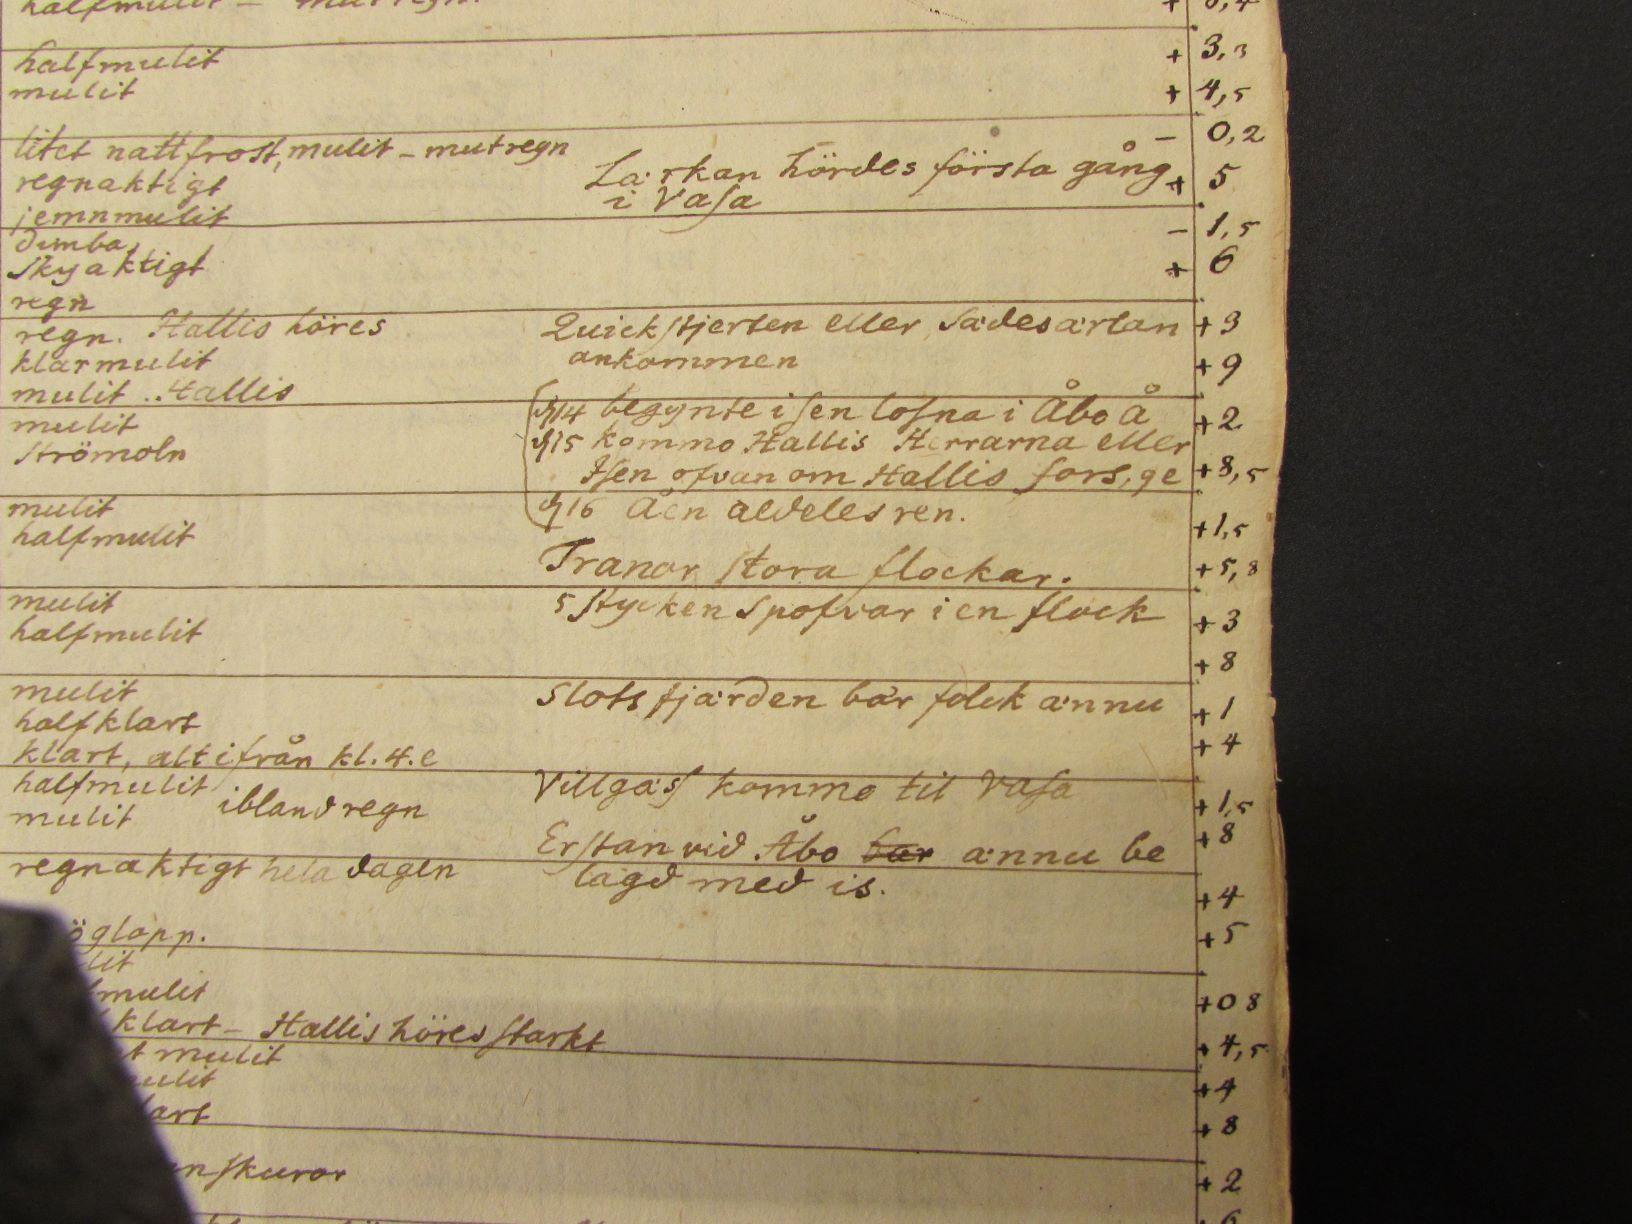 halfmulit +3,3
mulit +4,5
litet nattfrost, mulit – mutregn – 0,2
regnaktigt Lärkan hördes första gång + 5
jemnmulit i Vasa
dimba, – 1,5
Skyaktigt + 6
regn
regn. Hallis höres Quickstjerten eller Sädesärlan +3
klarmulit ankommen +9
mulit. Hallis
mulit d 14 begynte isen losna i Åbo Å +2
Strömoln d 15 kommo Hallis Herrarna eller
Isen ofvan om Hallis fors, ge +8,5
mulit d 16 Åen aldeles ren.
halfmulit +1,5
Tranor stora flockar. +5,8
mulit 5 Stycken Spofvar i en flock +3
halfmulit
+8
mulit Slotsfjärden bär folck ännu +1
halfklart +4
klart, alt ifrån kl. 4. e
halfmulit Villgäss kommo til Vasa
mulit ibland regn +1,5
Erstan vid Åbo bär ännu be +8
regnaktigt hela dagen lagd med is.
+4
öglopp. +5
lit
mulit +0 8
klart – Hallis höres starkt +4,5
t mulit
mulit +4
lart +8
nskuror +2